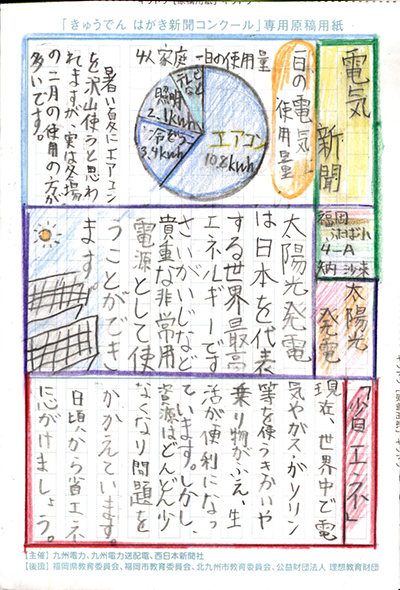 「きゅうでん はがき新聞コンクール」専用原稿用紙
電気
新聞
福岡
4-A
一日の電気
使用量
4人家庭 一日の使用量
エアコン
10.8kwh
冷ぞう
3.4kwh
照明
2.1kwh
テレビ
暑い夏にエアコン
を沢山使うと思わ
れますが、実は冬場
の二月の使用の方が
多いです。
太陽光
発電
太陽光発電
は日本を代表
する世界最高
エネルギーです
さいがいじなど
貴重な非常用
電源として使
うことができ
ます。
「省エネ」
現在、世界中で電
気やガス・ガソリン
等を使うきかいや
乗り物がふえ、生
活が便利になっ
ています。しかし、
資源はどんどん少
なくなり問題を
かかえています。
日頃から省エネ
に心がけましょう。
【主催】九州電力、九州電力送配電、西日本新聞社
【後援】福岡県教育委員会、福岡市教育委員会、北九州市教育委員会、公益財団法人 理想教育財団